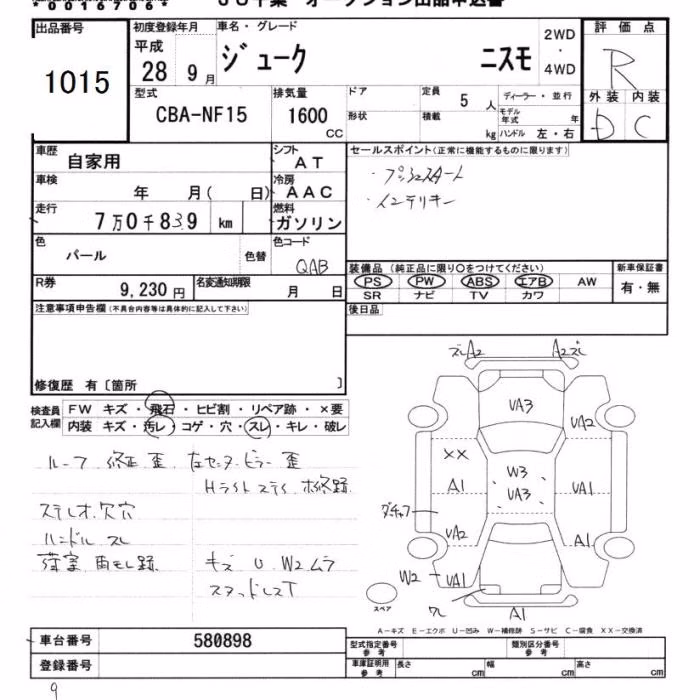 出品番号 初度登録年月 車名・グレード
1015 平成 28 9月 ジューク ニスモ 2WD・4WD
評価点 R
外装 内装
D C
型式 CBA-NF15 排気量 1600 CC
ドア 定員 5 人 ディーラー・並行
形状 積載 kg モデル年式 年
ハンドル 左・右
車歴 自家用 シフト AT
車検 年 月( 日) 冷房 AAC
走行 7万0千839 km 燃料 ガソリン
色 パール 色替 色コード QAB
R券 9,230円 名変通知期限 月 日
セールスポイント(正常に機能するものに限ります)
・プッシュスタート
・インテリキー
装備品(純正品に限り○をつけてください) 新車保証書
PS PW ABS エアB AW 有・無
SR ナビ TV カワ
注意事項申告欄(不具合内容等は具体的に記入して下さい) 後日品
修復歴 有〔箇所 〕
検査員記入欄 FW キズ・飛石・ヒビ割・リペア跡・×要
内装 キズ・汚レ・コゲ・穴・スレ・キレ・破レ
ルーフ 修正 歪 左センターピラー 歪
Hライトステイ 補修跡
ステレオ欠穴
ハンドル スレ
荷室 雨モレ跡 キズ U W2ムラ
スタッドレスT
ズレA2 A2ズレ
VA3
VA2 VA2
XX
W3
VA3
A1 VA1
ガチャフ
A1
W2 VA1
ワレ A1
スペア
A-キズ E-エクボ U-凹み W-補修跡 S-サビ C-腐食 XX-交換済
車台番号 580898
登録番号
型式指定番号 参考 類別区分番号 参考
車庫証明用 参考 長さ cm 幅 cm 高さ cm
9